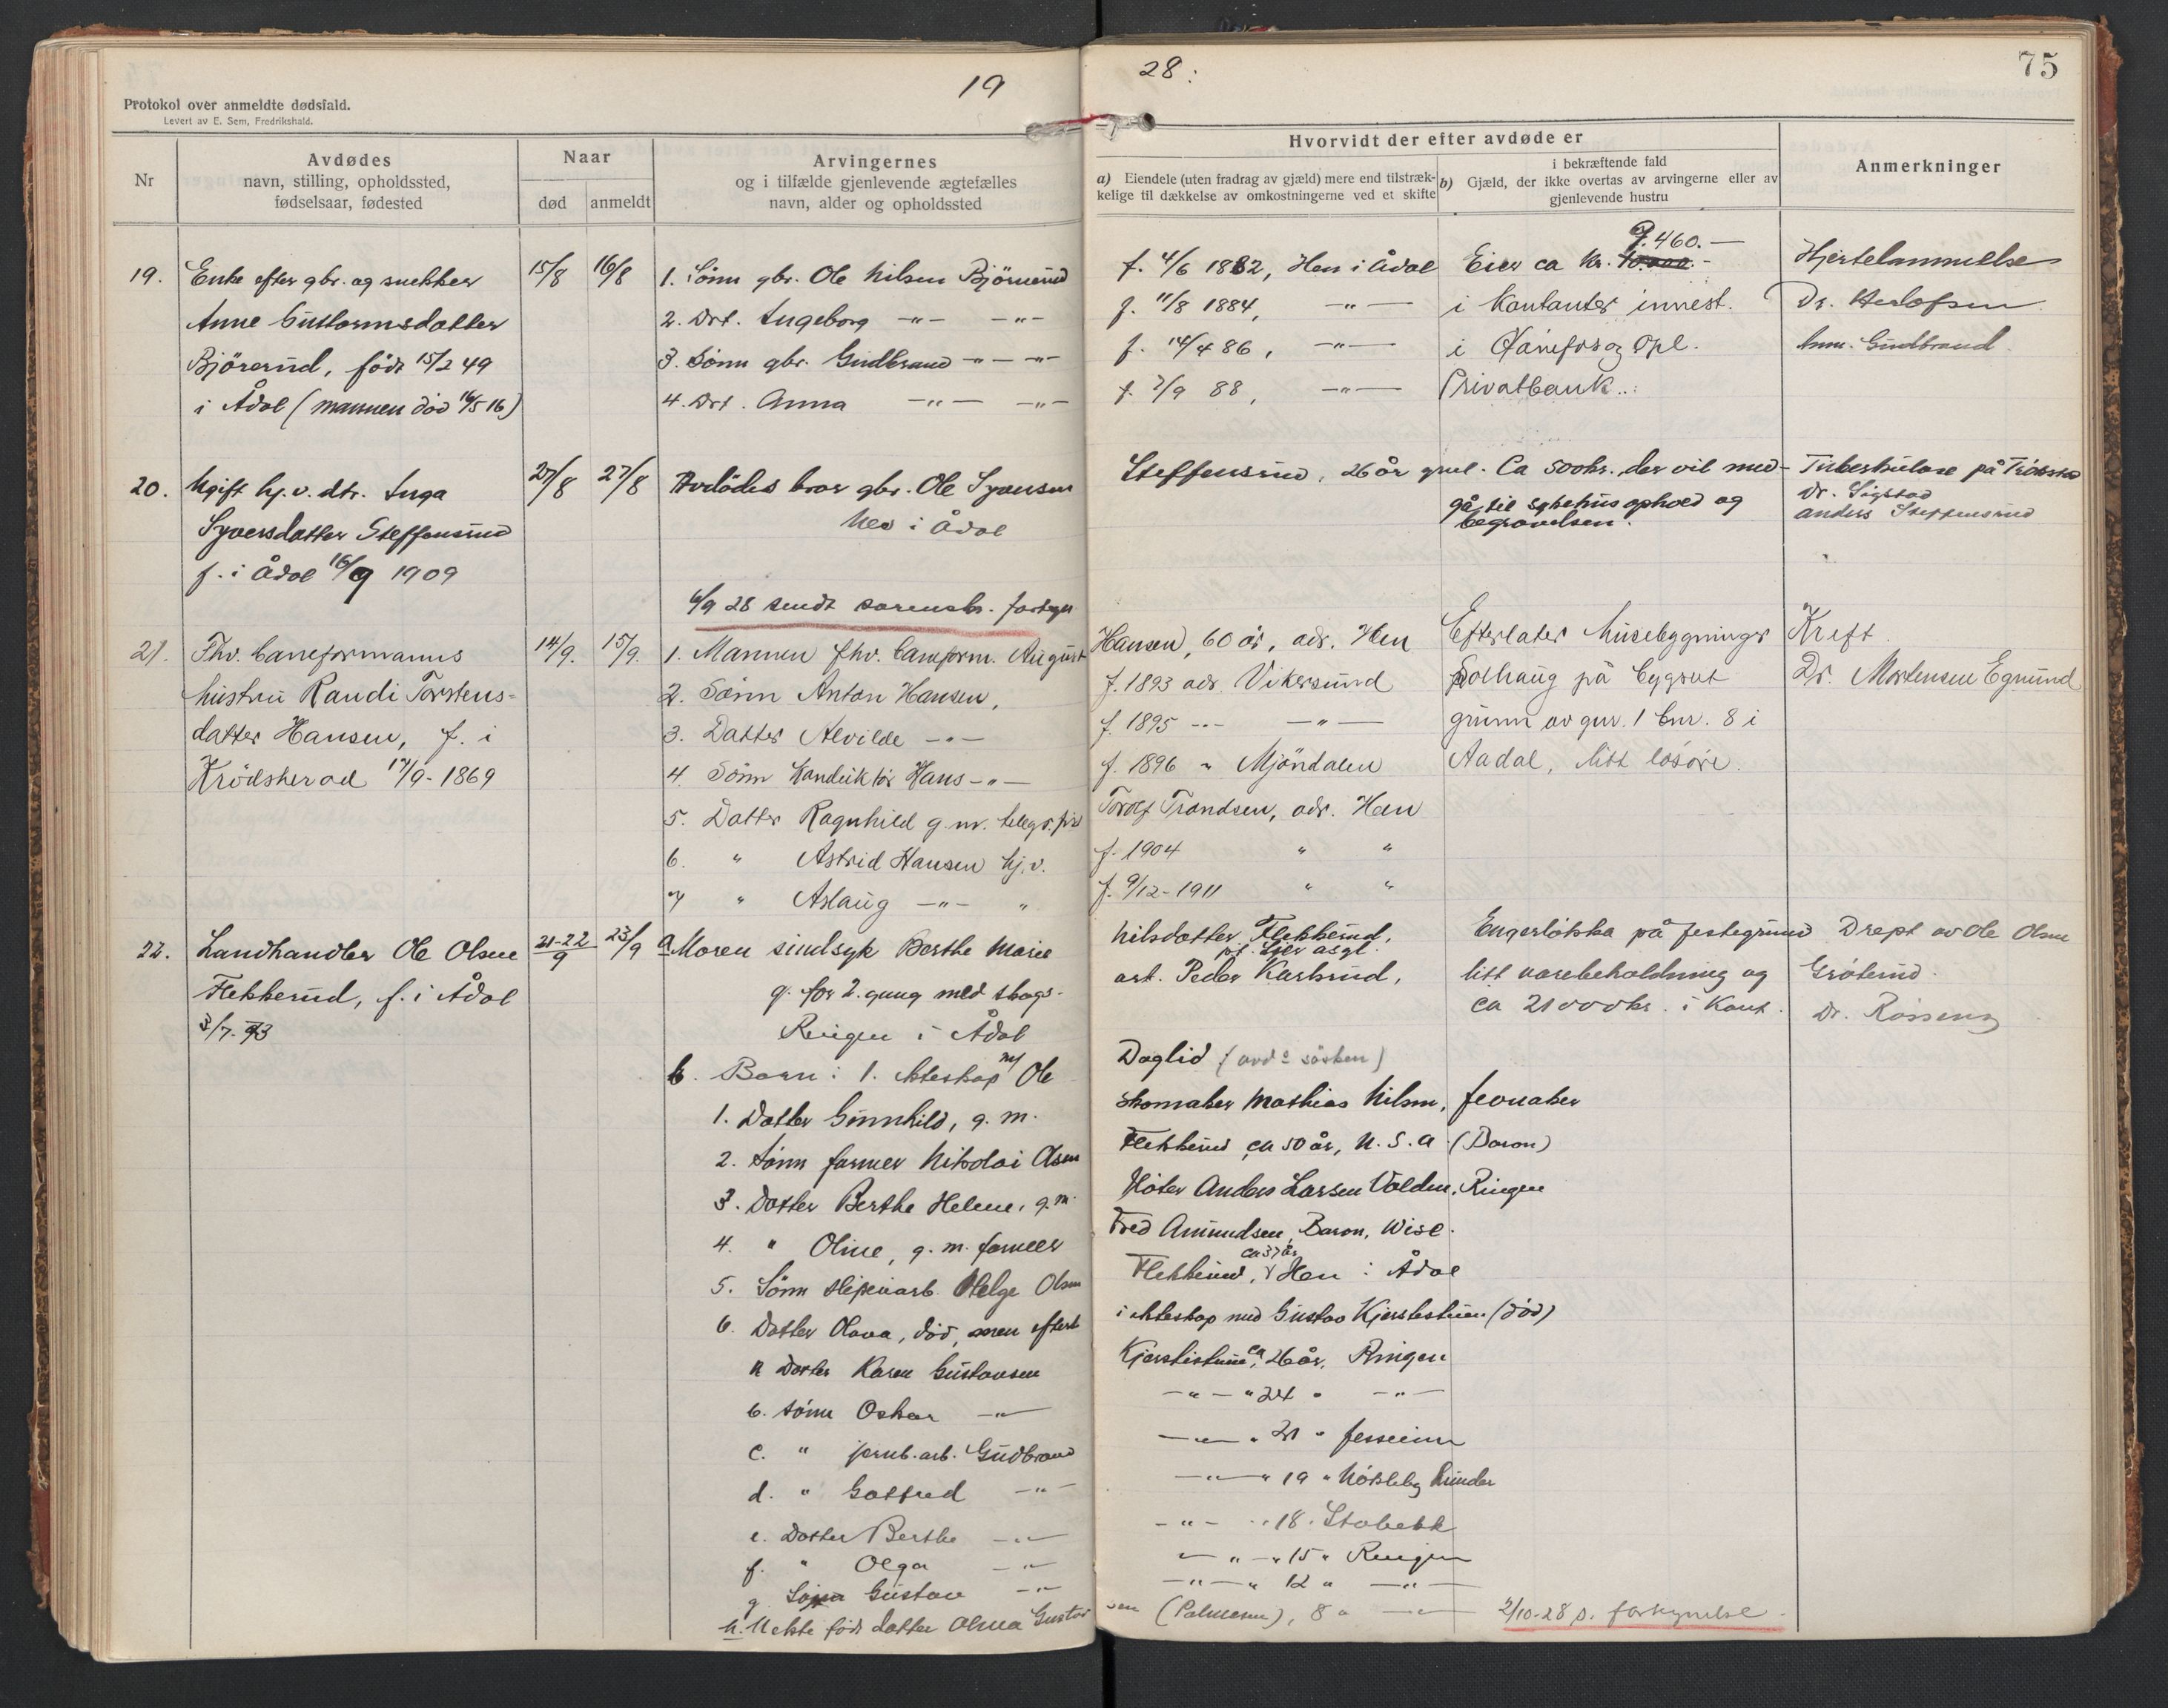 19
28:
75
Protokol over anmeldte dødsfald.
Levert av E. Sem, Fredrikshald.
Nr
Avdødes
navn, stilling, opholdssted,
fødselsaar, fødested
Naar
død
anmeldt
Arvingernes
og i tilfælde gjenlevende ægtefælles
navn, alder og opholdssted
Hvorvidt der efter avdøde er
a) Eiendele (uten fradrag av gjæld) mere end tilstræk-
kelige til dækkelse av omkostningerne ved et skifte
i bekræftende fald
b) Gjæld, der ikke overtas av arvingerne eller av
gjenlevende hustru
Anmerkninger
19. Enke efter gbr. og snekker
Anne Guttormsdatter
Bjørerud, født 15/2 49
i Ådal (mannen død 16/5 16)
15/8 16/8
1. Sønn gbr. Ole Nilsen Bjørnerud f. 4/6 1882, Hen i Ådal
2. Dtr. Ingeborg -"- -"- f. 11/8 1884, -"-
3. Sønn gbr. Gudbrand -"- -"- f. 14/4 86, -"-
4. Dtr. Anna -"- -"- f. 7/9 88, -"-
7.460.-
Eier ca kr. 10.000.-
i kontanter innest.
i Hønefos og Opl.
Privatbank.
Hjertelammelse
Dr. Herlofsen
Anm. Gudbrand
20. Ugift hj.v. dtr. Inga
Syversdatter Steffensrud
f. i Ådal 16/9 1909
27/8 27/8
Avdødes bror gbr. Ole Syversen Steffensrud, 26 år gml.
Nes i Ådal
Ca 500 kr. der vil med-
gå til sykehusophold og
begravelsen.
Tuberkulose på
Dr. Sigstad
Anders Steffensrud
6/9 28 sendt sorenskr.
21. Fhv. baneformanns
hustru Randi Torstens-
datter Hansen, f. i
Krødsherad 17/9-1869
14/9. 15/9.
1. Mannen fhv. baneform. August Hansen, 60 år, adr. Hen
2. Sønn Anton Hansen, f. 1893 adr. Vikersund
3. Datter Alvilde -"- f. 1895 -"- -"-
4. Sønn konduktør Hans -"- f. 1896 " Mjøndalen
5. Datter Ragnhild g.m. Torolf Trondsen, adr. Hen
6. " Astrid Hansen hj.v. f. 1904 " "
7 " Aslaug -"- " f. 9/12-1911 " "
Efterlater husebygninger
Solhaug på bygset
grunn av gnr. 1 bnr. 8 i
Aadal, litt løsøre.
Kreft.
Dr. Mortensen Egmund
22. Landhandler Ole Olsen
Flekkerud, f. i Ådal
3/7-93
21-22/9 23/9
a Moren sindsyk Berthe Marie Nilsdatter Flekkerud,
g. for 2. gang med skogs-
arb. Peder Karlsrud,
Ringen i Ådal
b. Barn: 1. ekteskap m/ Ole Daglid (avd<sup>s</sup> søsken)
1. Datter Gunnhild, g.m. skomaker Mathias Nilsen, Jevnaker
2. Sønn farmer Nikolai Olsen Flekkerud ca 50 år, U.S.A. (Baron)
3. Datter Berthe Helene, g.m. fløter Anders Larsen Volden, Ringen
4. " Oline, g.m. farmer Fred Amundsen, Baron, Wisc.
5. Sønn sliperiarb. Helge Olsen Flekkerud, ca 37 år Hen i Ådal
6. Datter Olava, død, men efterl. i ekteskap med Gustav Kjerstistuen (død)
a Datter Karen Gustavsen Kjerstistuen, ca 26 år, Ringen
b. Sønn Oskar -"- -"- " 24 " -"-
c. " jernb.arb. Gudbrand -"- " 21 " Jesseim
d. " Gotfred -"- -"- " 19 "
e. Datter Berthe -"- -"- " 18 " Stabekk
f. " Olga -"- -"- " 15 " Ringen
g. Sønn Gustav -"- -"- " 12 " -"-
h. Uekte født datter Olma Gustavsen (Palmesen), 8 " -"-
Engerløkka på festegrund
litt varebeholdning og
ca 21000 kr. i kont.
Drept av Ole Olsen
Grøterud.
2/10-28 s.